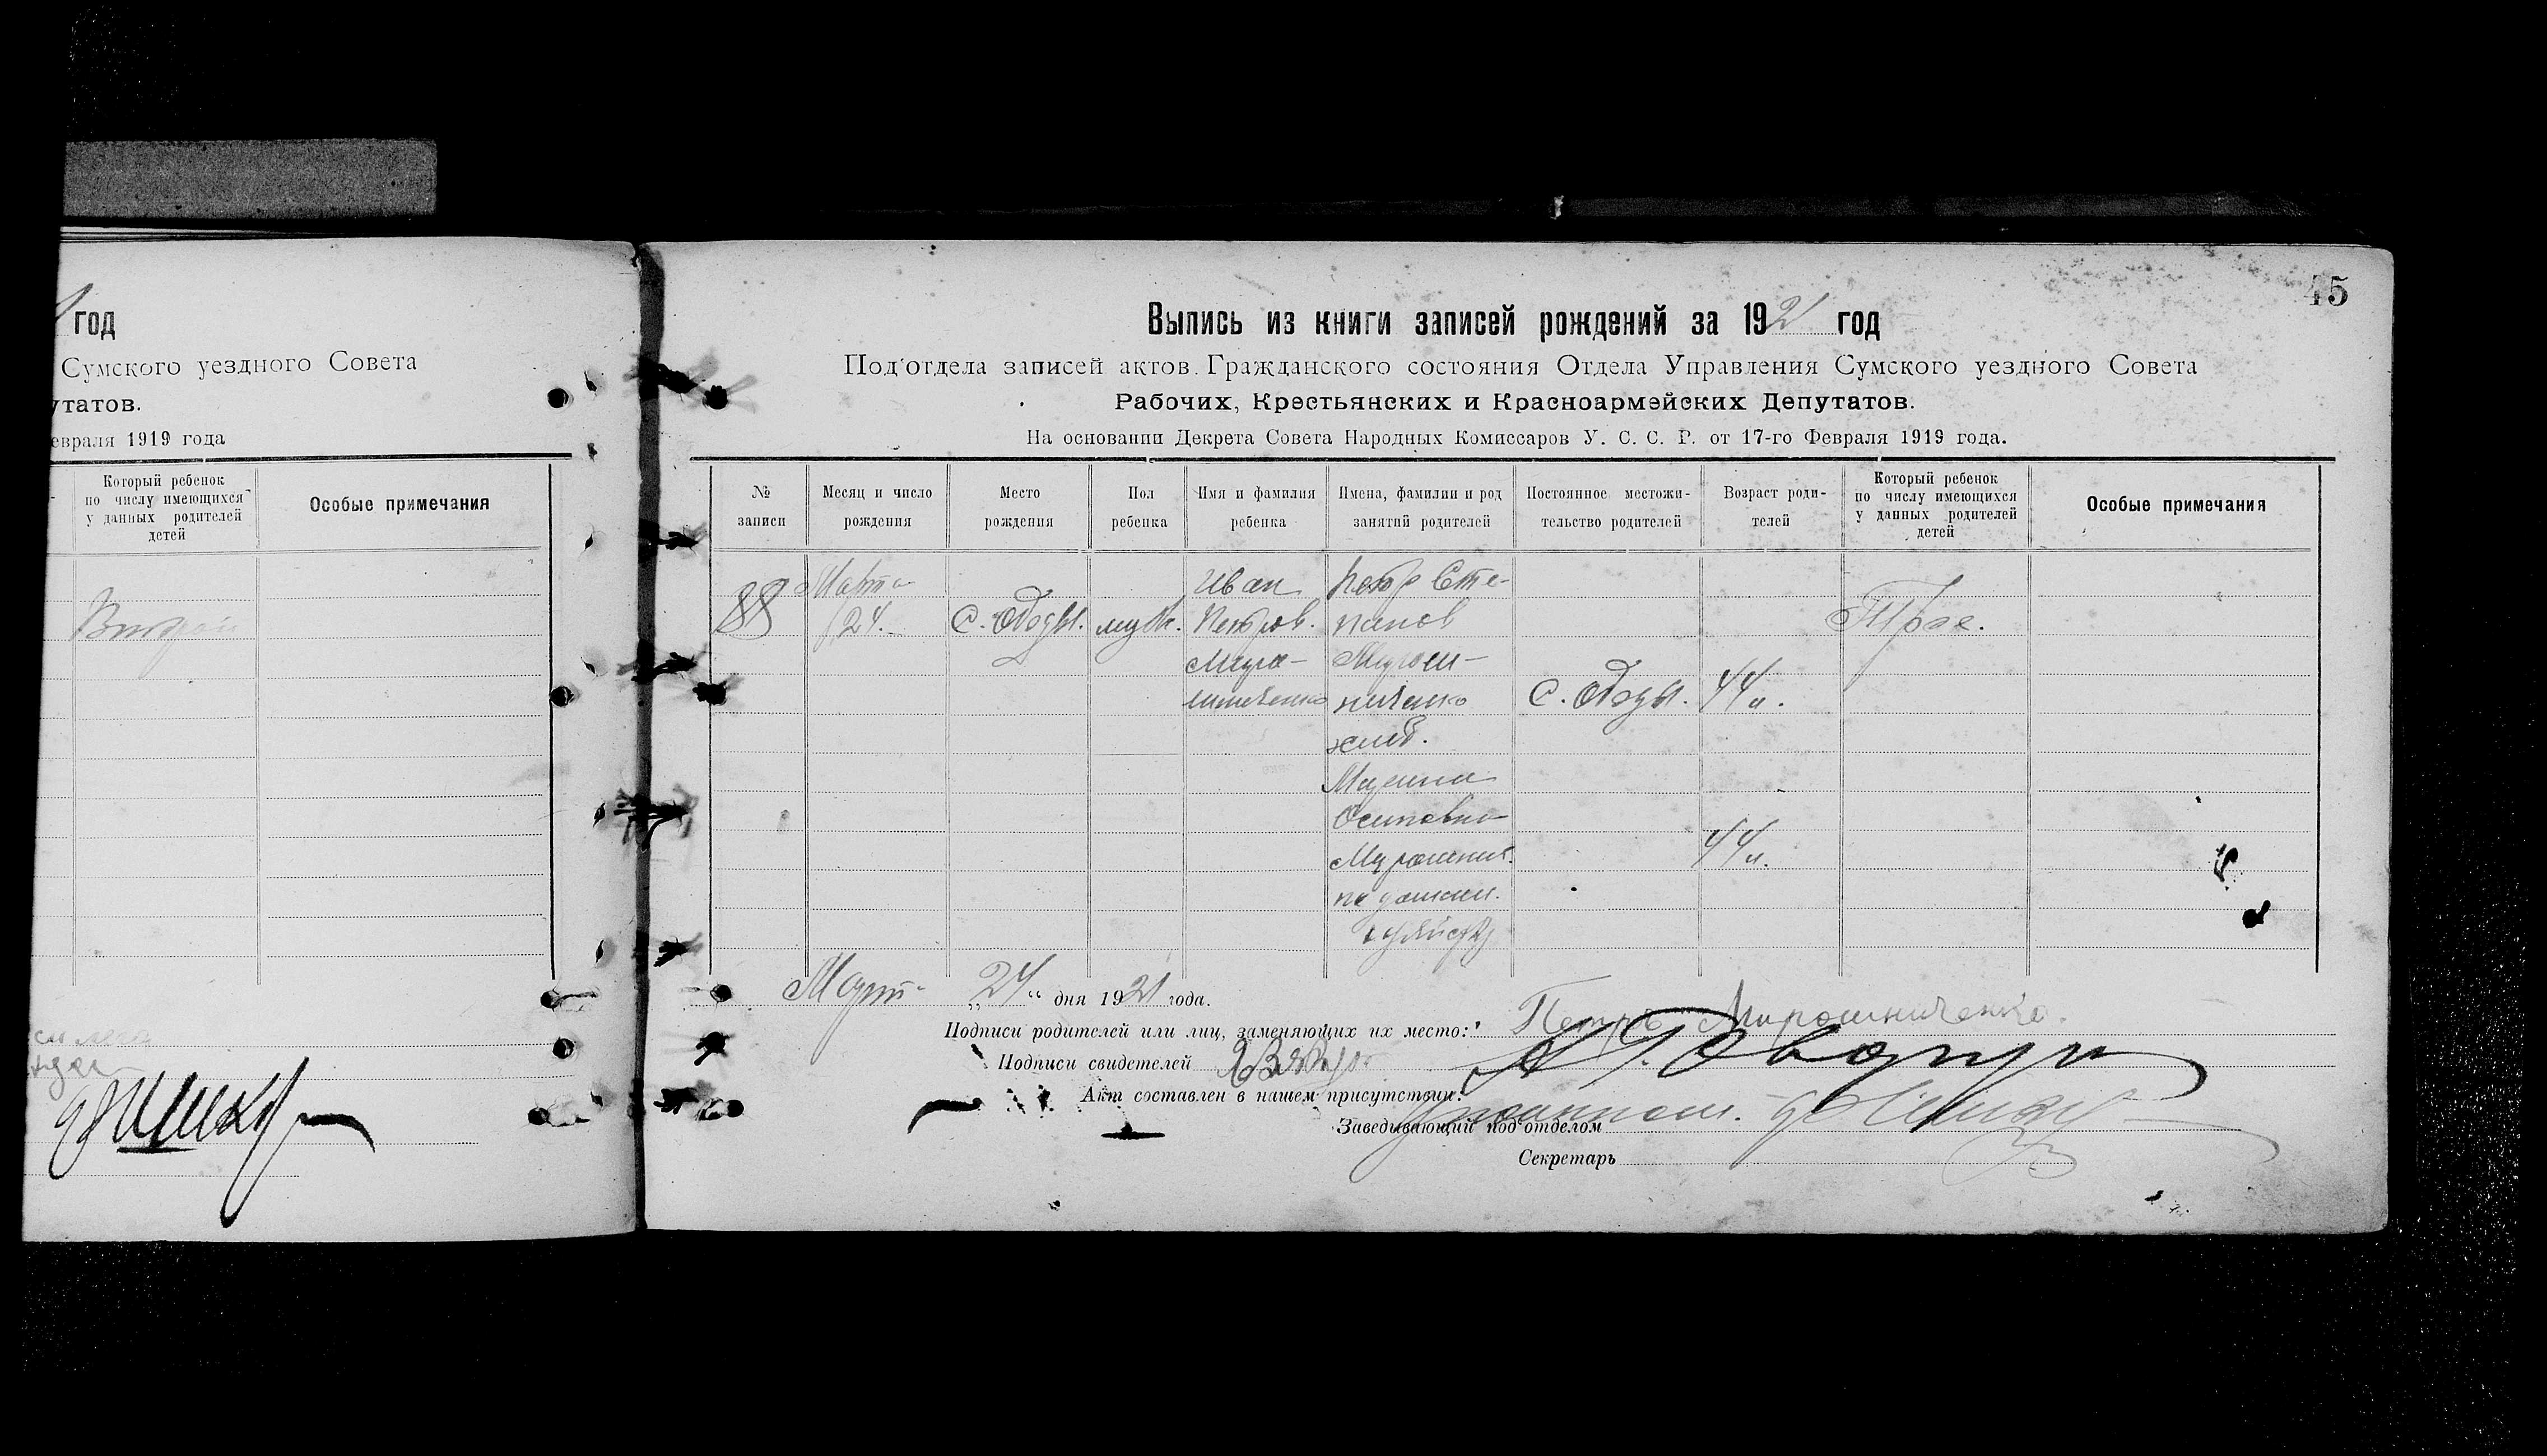 год
Сумского уездного Совета
утатов.
евраля 1919 года
Который ребенок
по числу имеющихся
у данных родителей
детей
Особые примечания
Второй
45
Выпись из книги записей рождений за 1921 год
Под'отдела записей актов Гражданского состояния Отдела Управления Сумского уездного Совета
Рабочих, Крестьянских и Красноармейских Депутатов.
На основании Декрета Совета Народных Комиссаров У. С. С. Р. от 17-го Февраля 1919 года.
№
записи
Месяц и число
рождения
Место
рождения
Пол
ребенка
Имя и фамилия
ребенка
Имена, фамилии и род
занятий родителей
Постоянное местожи-
тельство родителей
Возраст роди-
телей
Который ребенок
по числу имеющихся
у данных родителей
детей
Особые примечания
88
Марта
24.
с. Ободы.
муж.
Иван
Петров.
Миро-
шниченко
Петр Сте-
панов
Мирош-
ниченко
хлеб.
Осиповна
по домашн.
с. Ободы.
44
44
Трое.
Март „24“ дня 1921 года.
Подписи родителей или лиц, заменяющих их место: Петръ Мирошниченко.
Подписи свидетелей
Акт составлен в нашем присутствии:
Заведывающий под'отделом
Секретарь